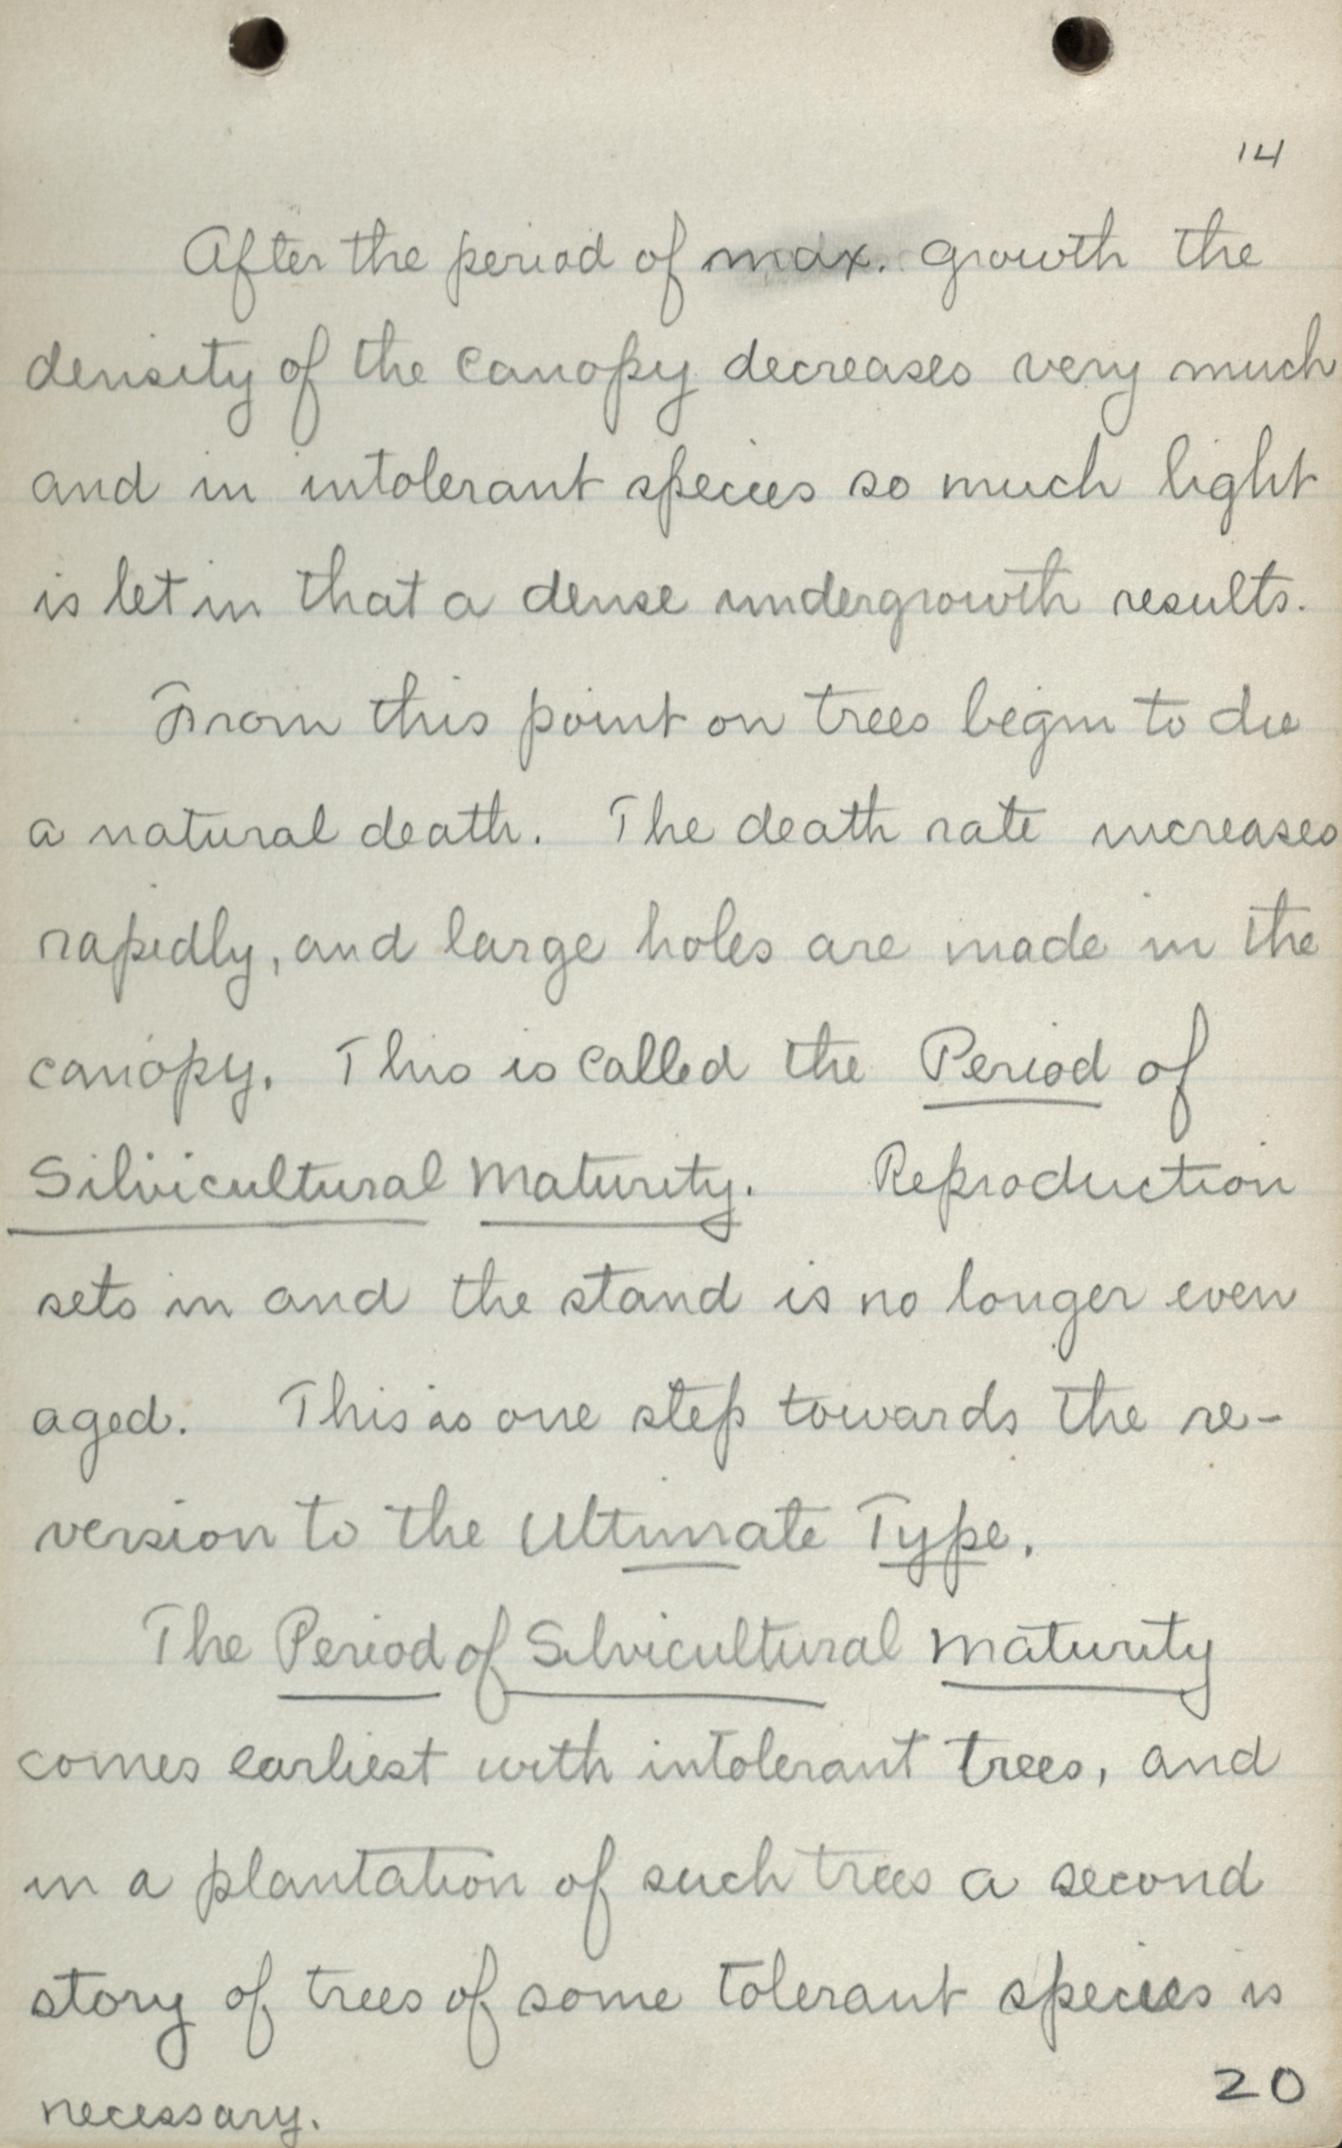 14
After the period of max. growth the
density of the canopy decreases very much
and in intolerant species so much light
is let in that a dense undergrowth results.
From this point on trees begin to die
a natural death. The death rate increases
rapidly, and large holes are made in the
canopy. This is called the Period of
Silvicultural Maturity. Reproduction
sets in and the stand is no longer even
aged. This is one step towards the re-
version to the Ultimate Type.
The Period of Silvicultural Maturity
comes earliest with intolerant trees, and
in a plantation of such trees a second
story of trees of some tolerant species is
necessary.
20